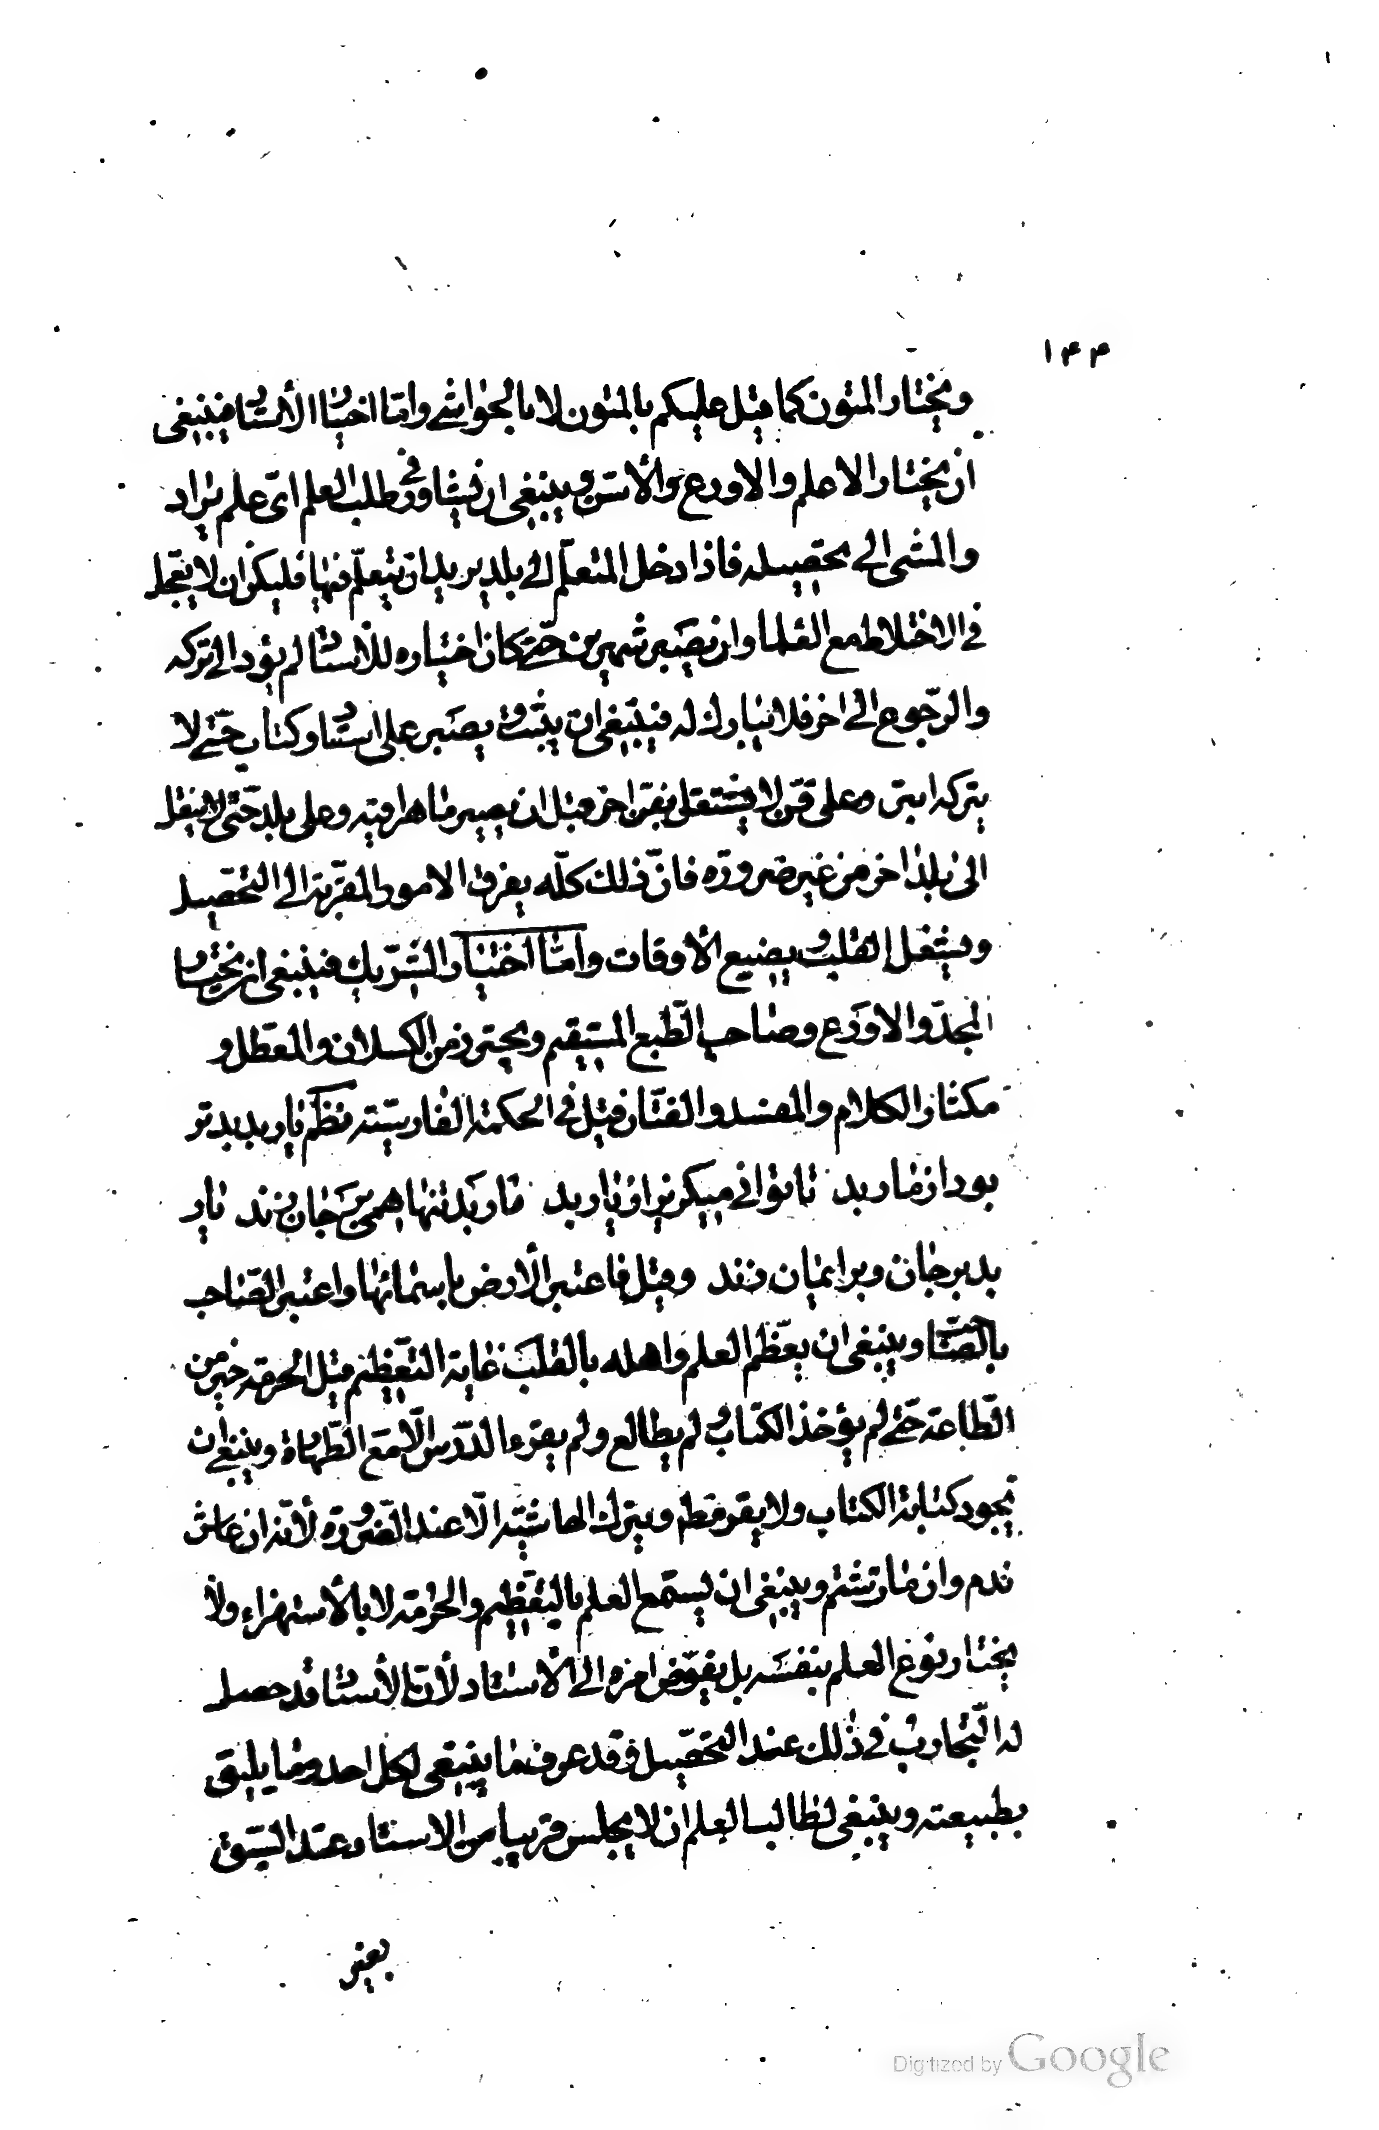 ١٤٤
ويختار المتون كما قيل عليكم بالمتون لا بالحواشي وامّا اختيار الأستاد فينبغي
ان يختار الاعلم والاورع والأسنّ وينبغي ان يشاور في طلب العلم اىّ علم يراد
والمشى الى تحصيله فاذا دخل المتعلّم الى بلد يريد ان يتعلّم فيها فليكن ان لا يعجل
فى الاختلاط مع العلماء وان يصبر شهرين حتى كان اختياره للأستاد لم يؤد الى تركه
والرّجوع الى اخر فلا يبارك له فينبغى ان يثبت ويصبر على استاد وكتاب حتّى لا
يتركه ابتر وعلى فنّ لا يشتغل بفنّ اخر قبل ان يصير ماهرا فيه وعلى بلد حتّى لا ينقل
الى بلد اخر من غير ضرورة فانّ ذلك كلّه يفرق الامور المقرّبة الى التحصيل
ويشغل القلب ويضيع الأوقات وامّا اختيار الشّريك فينبغى ان يختار
المجدّ والاورع وصاحب الطّبع المستقيم ويحترز من الكسلان والمعطّل و
مكثار الكلام والمفسد والفتّان قيل فى الحكمة الفارسيّة نظم يار بد بدتر
بود از مار بد تا توانى ميكريز از يار بد مار بد تنها همى بر جان زند يار
بد بر جان و بر ايمان زند وقيل فاعتبر الأرض باسمائها واعتبر الصّاحب
بالصّاحب وينبغى ان يعظّم العلم واهله بالقلب غاية التّعظيم قيل الحرمة خير من
الطّاعة حتّى لم يؤخذ الكتاب ولم يطالع ولم يقرء الدّرس الّا مع الطّهارة وينبغى ان
يجود كتابة الكتاب ولا يقرمط ويترك الحاشيّة الّا عند الضّرورة لأنّه ان عاش
ندم وان مات شتم وينبغى ان يستمع العلم بالتّعظيم والحرمة لا بالأستهزاء ولا
يختار نوع العلم بنفسه بل يفوّض امره الى الأستاد لأنّ الأستاد قد حصل
له التّجارب فى ذلك عند التحصيل وقد عرف ما ينبغى لكل احد وما يليق
بطبيعته وينبغى لطالب العلم ان لا يجلس قريبا من الاستاد عند السّبق
بغير
Digitized by Google